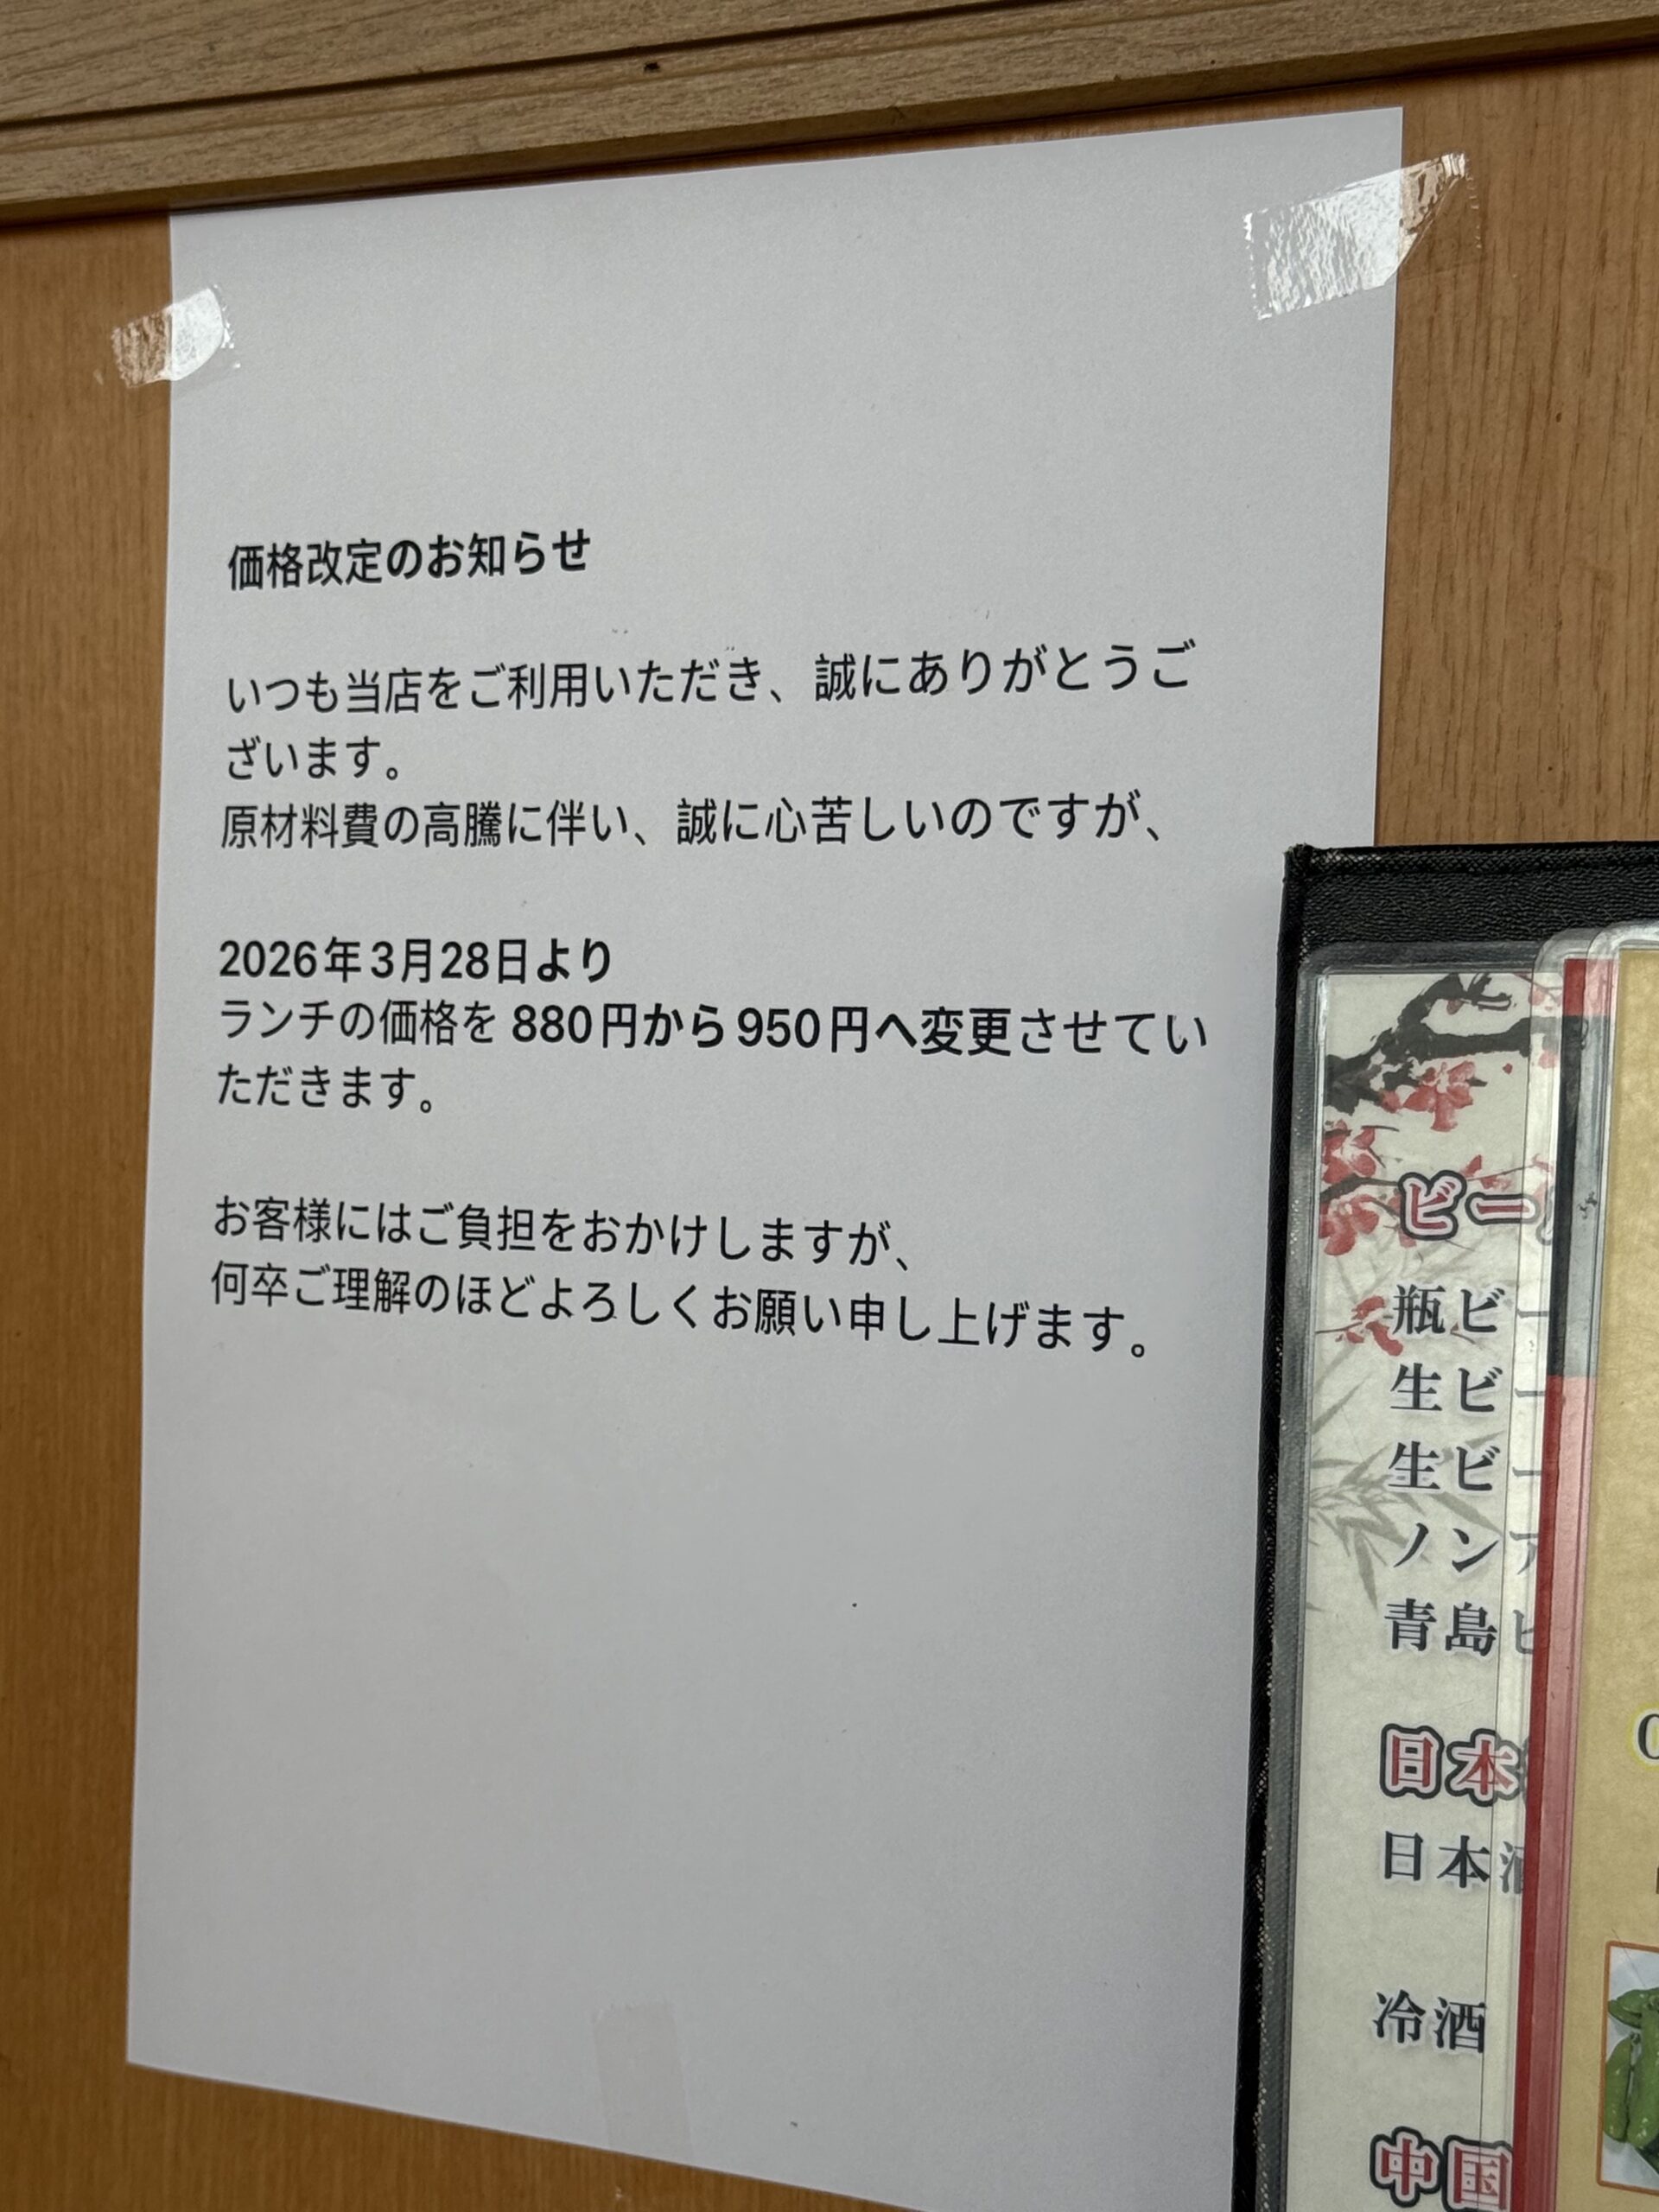 価格改定のお知らせ
いつも当店をご利用いただき、誠にありがとうご
ざいます。
原材料費の高騰に伴い、誠に心苦しいのですが、
2026年3月28日より
ランチの価格を 880円から950円へ変更させてい
ただきます。
お客様にはご負担をおかけしますが、
何卒ご理解のほどよろしくお願い申し上げます。
ビー
瓶ビー
生ビー
生ビー
ノンア
青島ビ
日本
日本酒
冷酒
中国